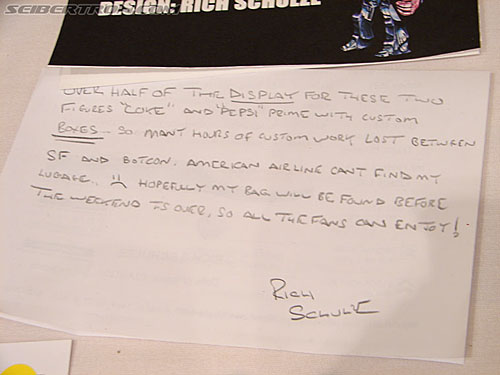 SEIBERTRON.COM
DESIGN: RICH SCHULZE
OVER HALF OF THE DISPLAY FOR THESE TWO
FIGURES "COKE" AND "PEPSI" PRIME WITH CUSTOM
BOXES - SO MANY HOURS OF CUSTOM WORK LOST BETWEEN
SF AND BOTCON. AMERICAN AIRLINE CANT FIND MY
LUGAGE.. :( HOPEFULLY MY BAG WILL BE FOUND BEFORE
THE WEEKEND IS OVER, SO ALL THE FANS CAN ENJOY!
RICH
SCHULZE